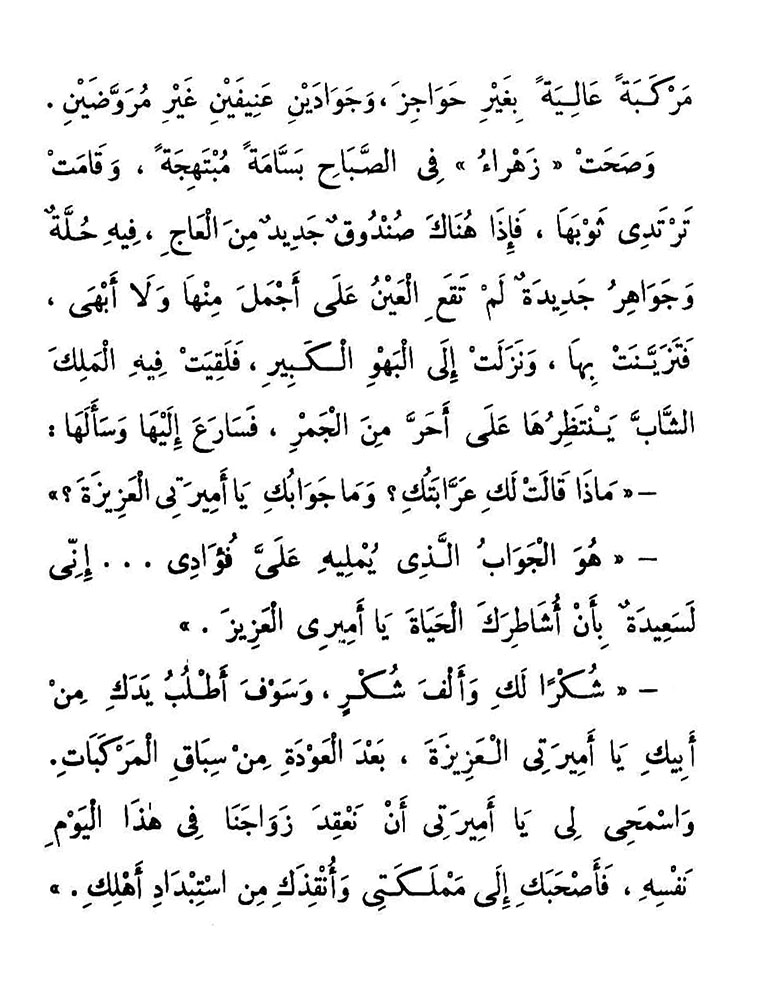 مَرْكَبَةً عَالِيَةً بِغَيْرِ حَوَاجِزَ، وَجَوَادَيْنِ عَنِيفَيْنِ غَيْرِ مُرَوَّضَيْنِ.
وَصَحَتْ « زَهْرَاءُ » فِى الصَّبَاحِ بَسَّامَةً مُبْتَهِجَةً، وَقَامَتْ
تَرْتَدِى ثَوْبَهَا، فَإِذَا هُنَاكَ صُنْدُوقٌ جَدِيدٌ مِنَ الْعَاجِ، فِيهِ حُلَّةٌ
وَجَوَاهِرُ جَدِيدَةٌ لَمْ تَقَعِ الْعَيْنُ عَلَى أَجْمَلَ مِنْهَا وَلَا أَبْهَى،
فَتَزَيَّنَتْ بِهَا، وَنَزَلَتْ إِلَى الْبَهْوِ الْكَبِيرِ، فَلَقِيَتْ فِيهِ الْمَلِكَ
الشَّابَّ يَنْتَظِرُهَا عَلَى أَحَرَّ مِنَ الْجَمْرِ، فَسَارَعَ إِلَيْهَا وَسَأَلَهَا:
– « مَاذَا قَالَتْ لَكِ عَرَّابَتُكِ؟ وَمَا جَوَابُكِ يَا أَمِيرَتِى الْعَزِيزَةَ؟ »
– « هُوَ الْجَوَابُ الَّذِى يُمْلِيهِ عَلَىَّ فُؤَادِى ... إِنِّى
لَسَعِيدَةٌ بِأَنْ أُشَاطِرَكَ الْحَيَاةَ يَا أَمِيرِى الْعَزِيزَ. »
– « شُكْرًا لَكِ وَأَلْفَ شُكْرٍ، وَسَوْفَ أَطْلُبُ يَدَكِ مِنْ
أَبِيكِ يَا أَمِيرَتِى الْعَزِيزَةَ، بَعْدَ الْعَوْدَةِ مِنْ سِبَاقِ الْمَرْكَبَاتِ.
وَاسْمَحِى لِى يَا أَمِيرَتِى أَنْ نَعْقِدَ زَوَاجَنَا فِى هٰذَا الْيَوْمِ
نَفْسِهِ، فَأَصْحَبَكِ إِلَى مَمْلَكَتِى وَأُنْقِذَكِ مِنِ اسْتِبْدَادِ أَهْلِكِ. »